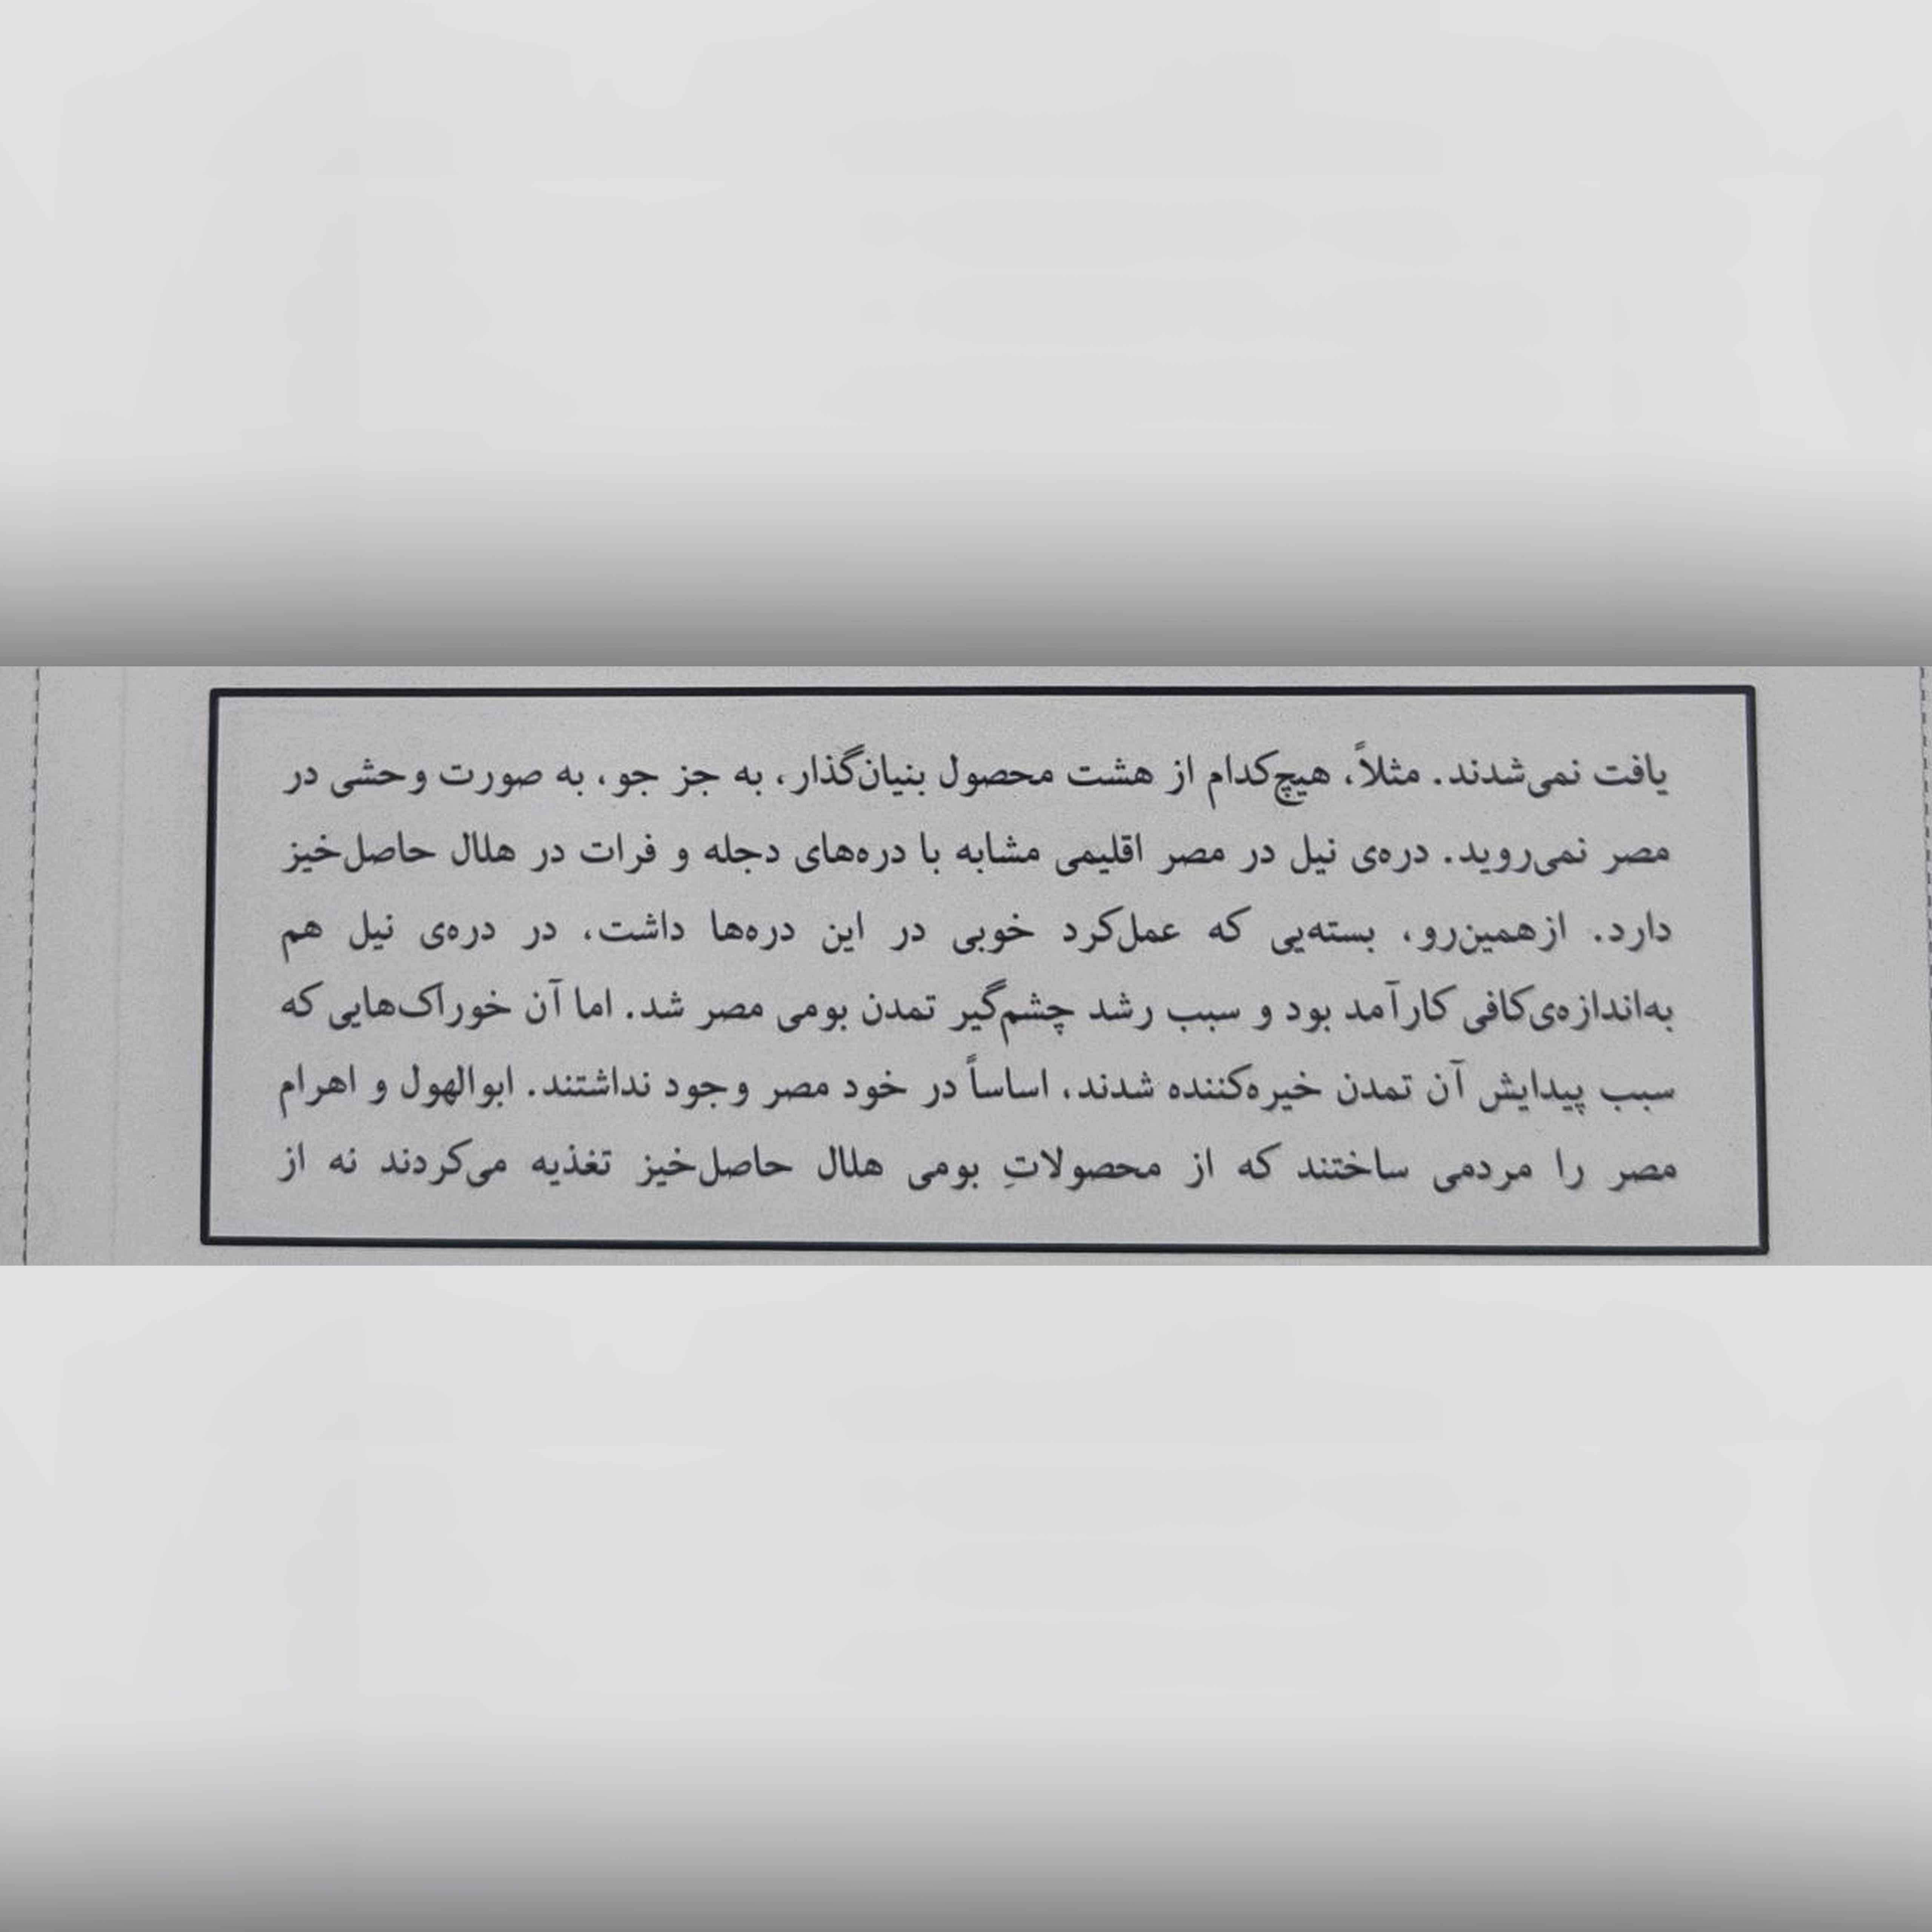 یافت نمی‌شدند. مثلاً، هیچ‌کدام از هشت محصول بنیان‌گذار، به جز جو، به صورت وحشی در
مصر نمی‌روید. دره‌ی نیل در مصر اقلیمی مشابه با دره‌های دجله و فرات در هلال حاصل‌خیز
دارد. ازهمین‌رو، بسته‌یی که عمل‌کرد خوبی در این دره‌ها داشت، در دره‌ی نیل هم
به‌اندازه‌ی‌کافی کارآمد بود و سبب رشد چشم‌گیر تمدن بومی مصر شد. اما آن خوراک‌هایی که
سبب پیدایش آن تمدن خیره‌کننده شدند، اساساً در خود مصر وجود نداشتند. ابوالهول و اهرام
مصر را مردمی ساختند که از محصولاتِ بومی هلال حاصل‌خیز تغذیه می‌کردند نه از